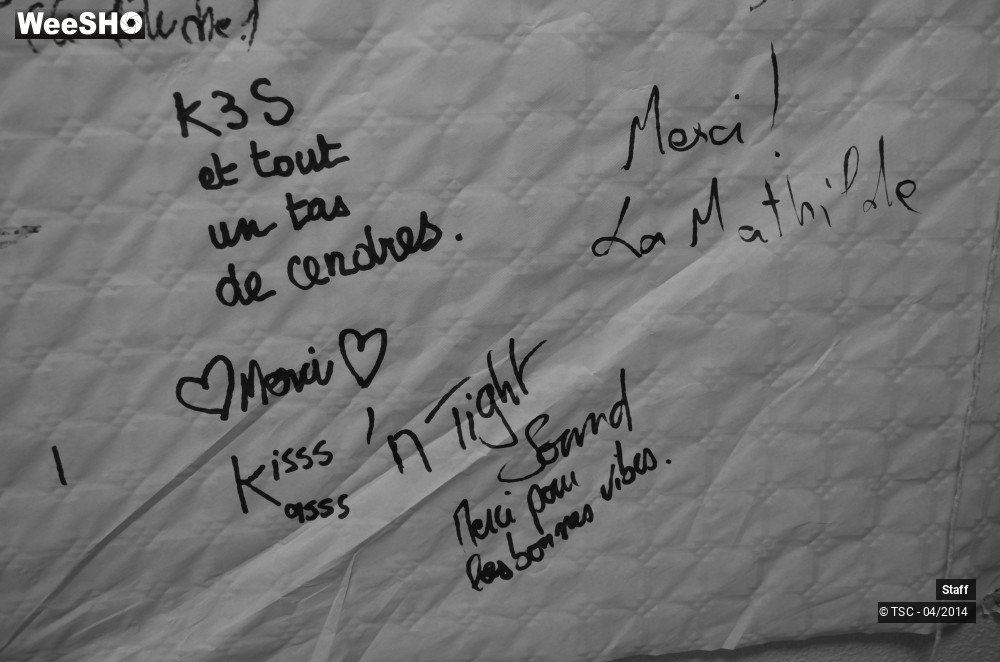 WeeSHO
K3S
et tout
un tas
de cendres.
Merci !
La Mathilde
♡ Merci ♡
Kisss 'n Tight
asss
Sound
Merci pour
les bonnes vibes.
Staff
© TSC - 04/2014